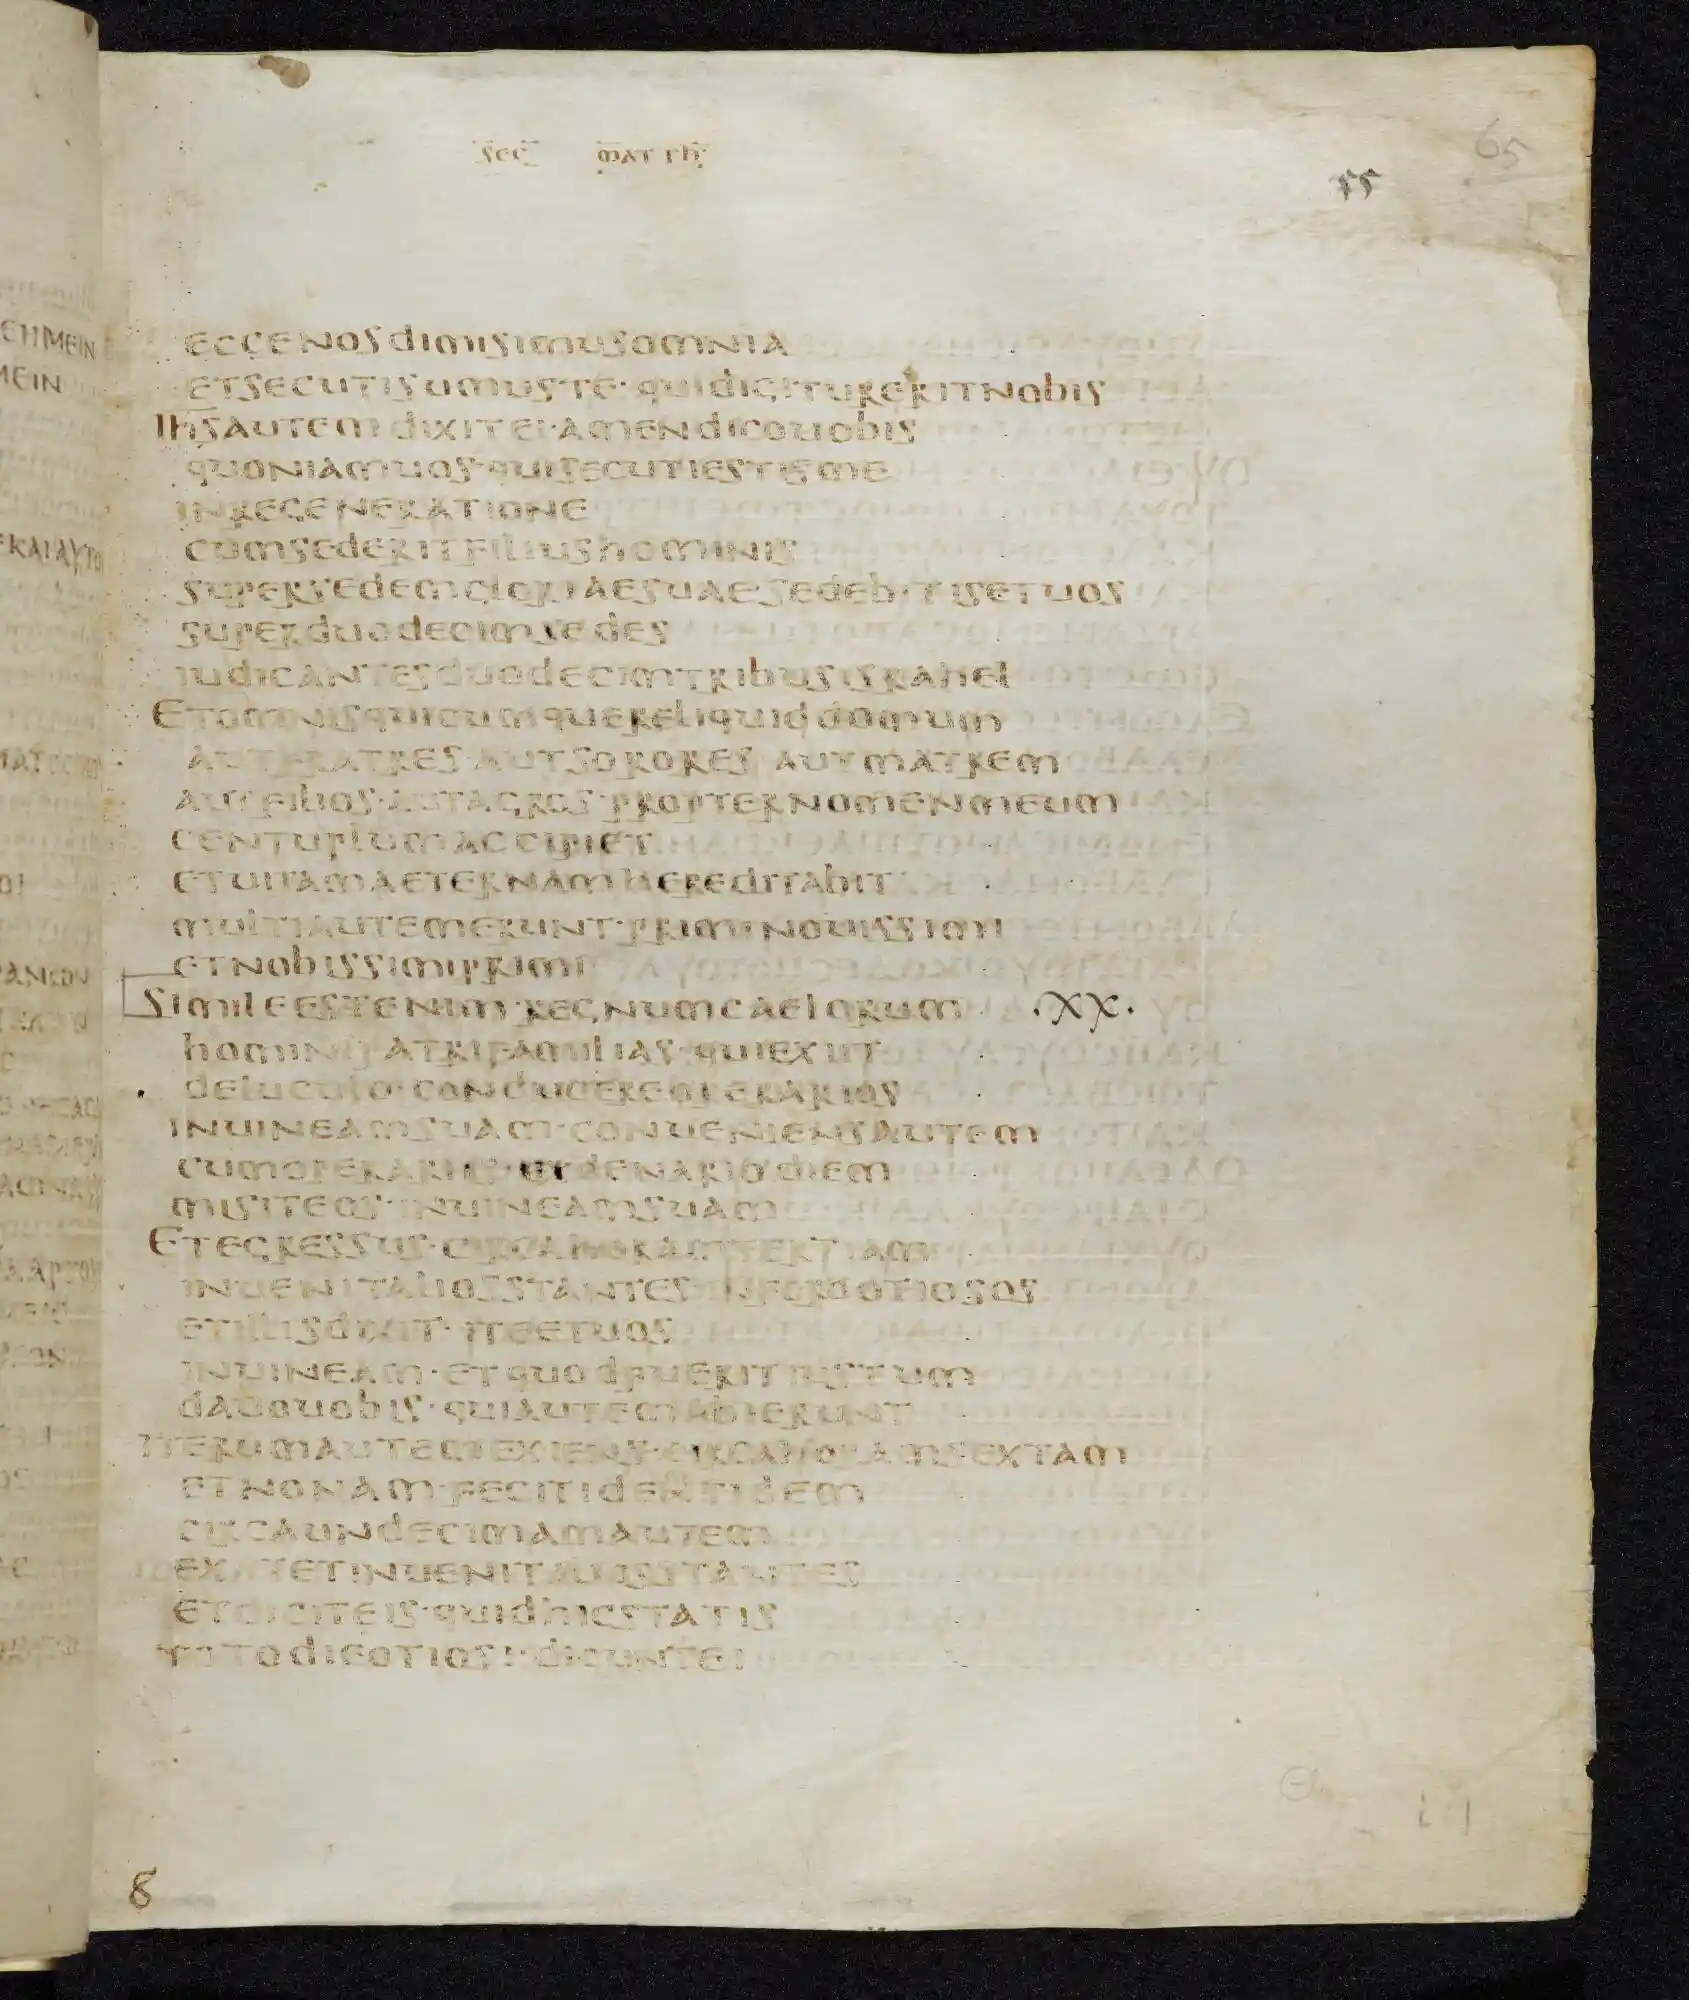 SEC MATTH
65
55
ECCENOSDIMISIMUSOMNIA
ETSECUTISUMUSTE·QUIDIGITURERITNOBIS
IHSAUTEMDIXITEI·AMENDICOUOBIS
QUONIAMUOS·QUISECUTIESTISME
INREGENERATIONE
CUMSEDERITFILIUSHOMINIS
SUPERSEDEMGLORIAESUAE·SEDEBITISETUOS
SUPERDUODECIMSEDES
IUDICANTESDUODECIMTRIBUSISRAHEL
ETOMNISQUICUMQUERELIQUIDDOMUM
AUTFRATRES·AUTSORORES AUTMATREM
AUTFILIOS·AUTAGROS·PROPTERNOMENMEUM
CENTUPLUMACCIPIET
ETUITAMAETERNAMHEREDITABIT
MULTIAUTEMERUNT·PRIMINOUISSIMI
ETNOBISSIMIPRIMI
SIMILEESTENIM·REGNUMCAELORUM ·XX·
HOMINIPATRIFAMILIAS·QUIEXIIT
DELUCULO·CONDUCEREOPERARIOS
INUINEAMSUAM·CONUENIENSAUTEM
CUMOPERARIIS·EXDENARIODIEM
MISITEOS·INUINEAMSUAM
ETEGRESSUS·CIRCAHORAMTERTIAM
INUENITALIOSSTANTES·INFOROOTIOSOS
ETILLISDIXIT·ITEETUOS
INUINEAM·ETQUODFUERITIUSTUM
DABOUOBIS·QUIAUTEMABIERUNT
ITERUMAUTEMEXIENS·CIRCAHORAMSEXTAM
ETNONAM·FECITIDENTIDEM
CIRCAUNDECIMAMAUTEM
ETINUENITALIOSSTANTES
ETDICITEIS·QUIDHICSTATIS
TOTODIEOTIOSI·DICUNTEI
8